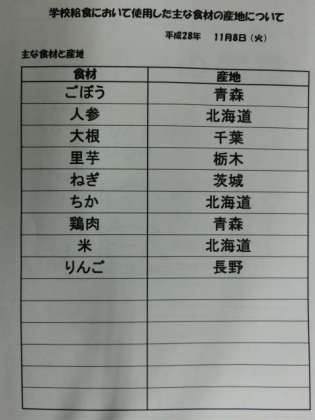 学校給食において使用した主な食材の産地について
平成28年 11月8日（火）
主な食材と産地
食材 産地
ごぼう 青森
人参 北海道
大根 千葉
里芋 栃木
ねぎ 茨城
ちか 北海道
鶏肉 青森
米 北海道
りんご 長野